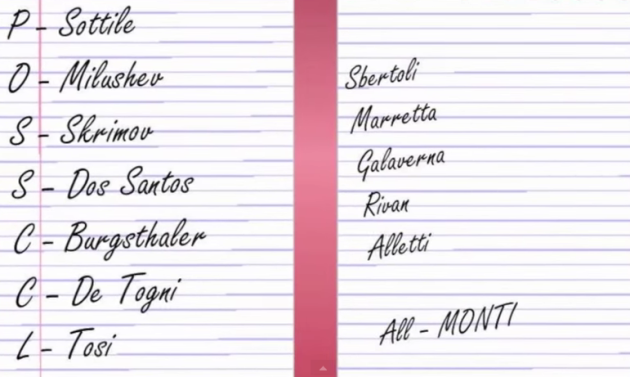 P - Sottile
O - Milushev
S - Skrimov
S - Dos Santos
C - Burgsthaler
C - De Togni
L - Tosi
Sbertoli
Marretta
Galaverna
Rivan
Alletti
All - MONTI